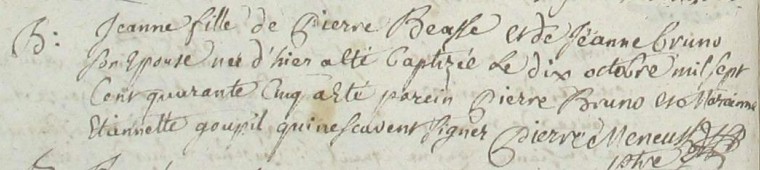 B: Jeanne fille de Pierre Beasse et de Jeanne bruno
son Epouse nee d'hier a eté baptizée le dix octobre mil sept
Cent quarante Cinq a eté parein Pierre Bruno et Maraine
Etiannette goupil qui ne scavent signer Pierre Meneust
ptre